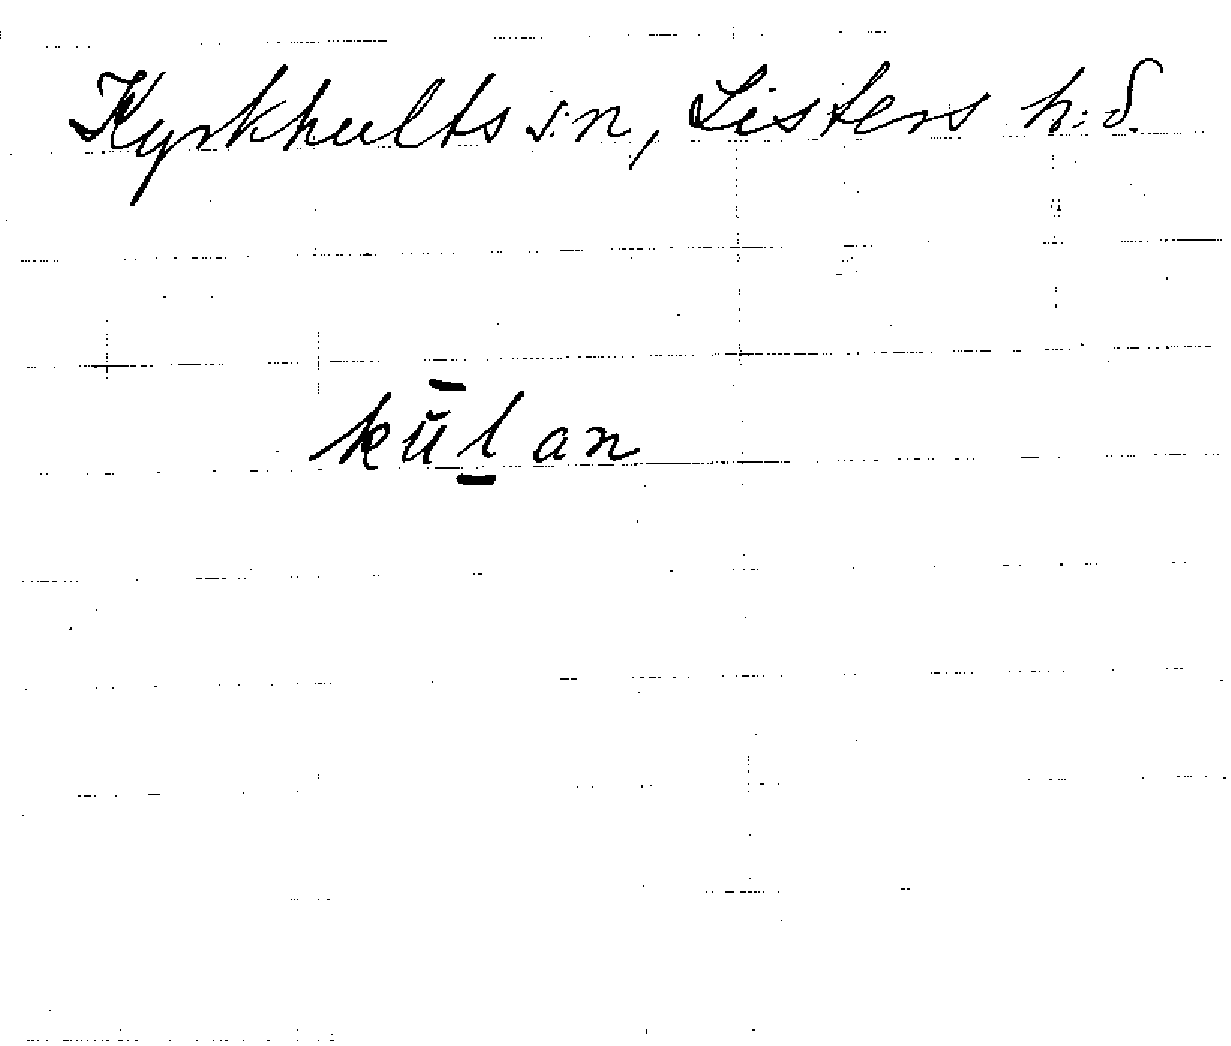 Kyrkhults s:n, Listers h:d.
kūl̲an